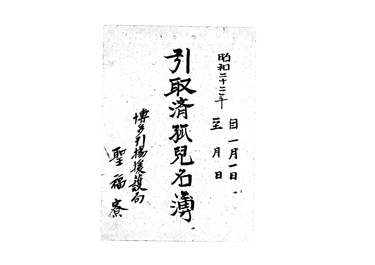 昭和二十二年
自一月一日
至 月 日
引取済孤児名簿
博多引揚援護局
聖福寮